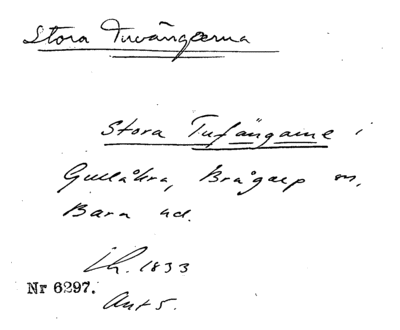 Stora Tuvängarna
Stora Tufängarne i
Gullåkra, Brågarp sn,
Bara hd.
Lh. 1833
Nr 6297.
Ant 5.